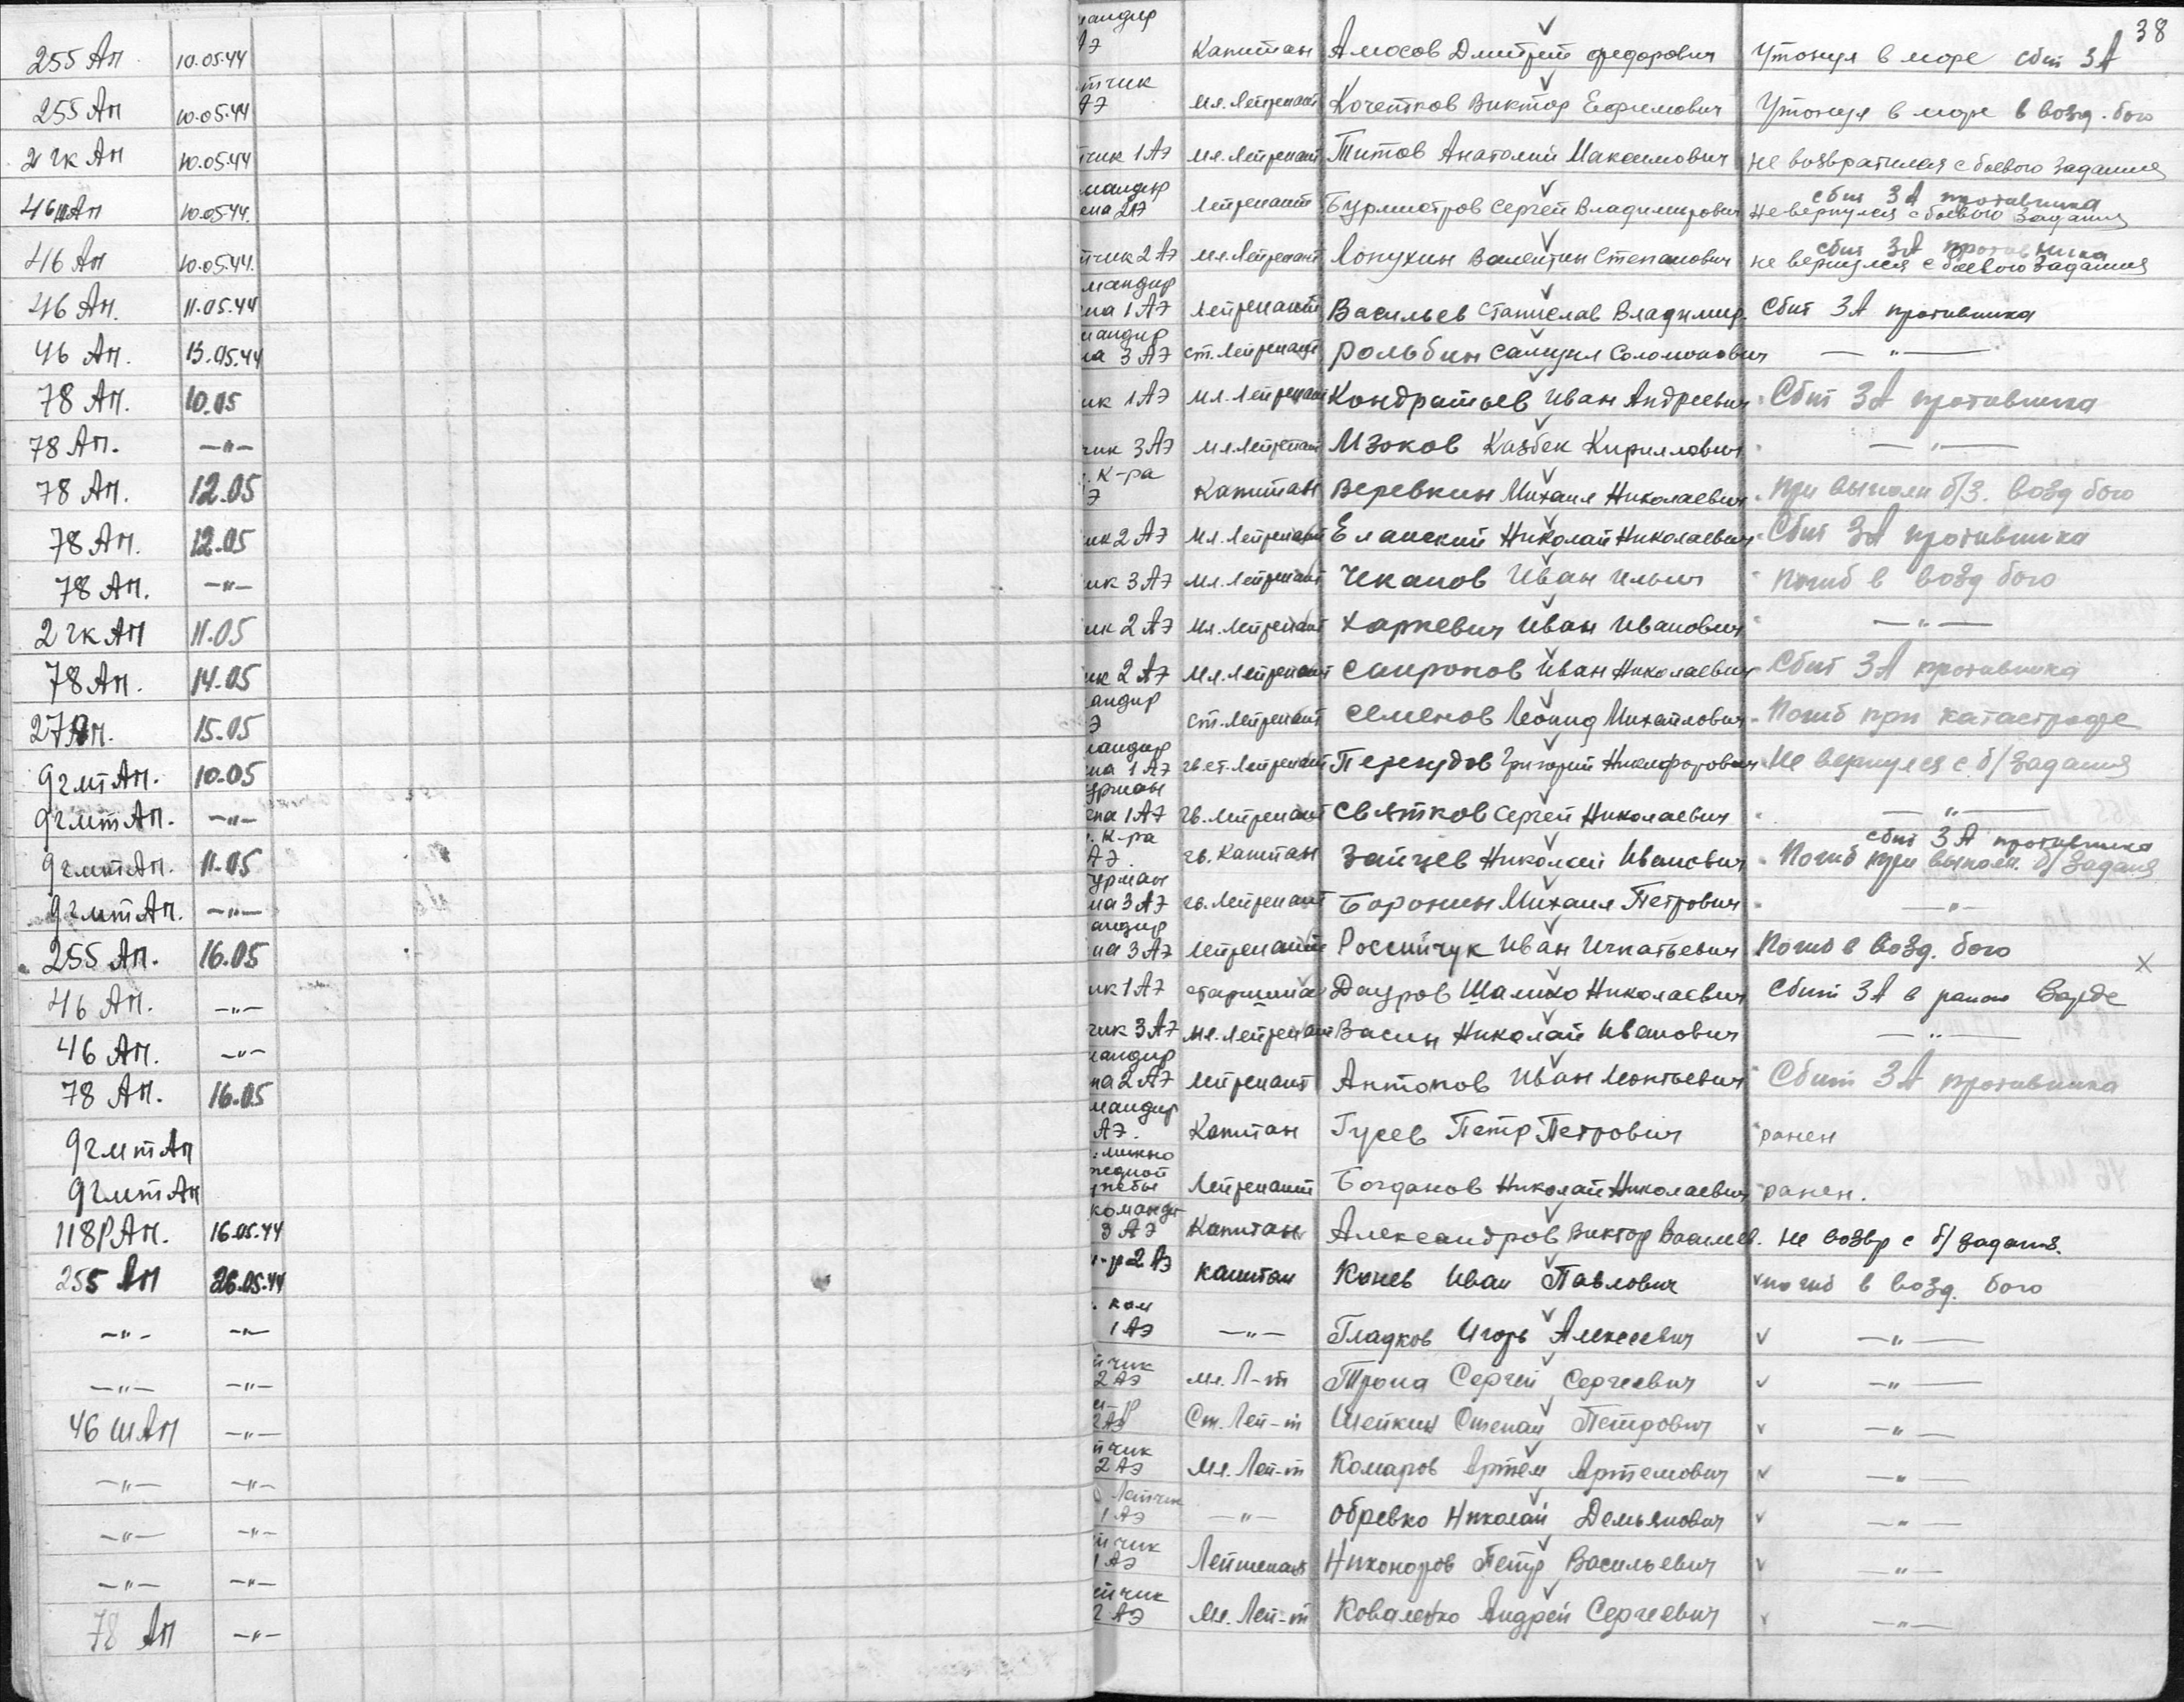 38
255 Ап 10.05.44 мандир АЭ Капитан Амосов Дмитрий Федорович Утонул в море сбит ЗА
255 Ап 10.05.44 тчик АЭ мл. Лейтенант Кочетков Виктор Ефимович Утонул в море в возд. бою
2 гк Ап 10.05.44 тчик 1 АЭ мл. Лейтенант Титов Анатолий Максимович не возвратился с боевого задания
46 шАп 10.05.44. мандир ена 2АЭ Лейтенант Бурмистров Сергей Владимирович сбит ЗА противника не вернулся с боевого задания
46 Ап 10.05.44. тчик 2 АЭ мл. Лейтенант Лопухин Валентин Степанович сбит ЗА противника не вернулся с боевого задания
46 Ап. 11.05.44 мандир ена 1 АЭ лейтенант Васильев Станислав Владимир. Сбит ЗА противника
46 Ап. 13.05.44 мандир на 3 АЭ ст. Лейтенант Рольбин Самуил Соломонович — " —
78 Ап. 10.05 ик 1 АЭ мл. Лейтенант Кондратьев Иван Андреевич Сбит ЗА противника
78 Ап. — " — чик 3 АЭ мл. Лейтенант Мзоков Казбек Кириллович — " —
78 Ап. 12.05 . К-ра Э Капитан Веревкин Михаил Николаевич При выполн б/з. возд бою
78 Ап. 12.05 ик 2 АЭ мл. Лейтенант Еланский Николай Николаевич Сбит ЗА противника
78 Ап. — " — ик 3 АЭ мл. Лейтенант Чеканов Иван Ильич Погиб в возд бою
2 гк Ап 11.05 ик 2 АЭ мл. Лейтенант Харкевич Иван Иванович — " —
78 Ап. 14.05 ик 2 АЭ мл. Лейтенант Сапронов Иван Николаевич Сбит ЗА противника
27 Ап. 15.05 андир Э ст. Лейтенант Семенов Леонид Михайлович Погиб при катастрофе
9 гмт Ап. 10.05 мандир ена 1 АЭ гв. ст. Лейтенант Перегудов Григорий Никифорович Не вернулся с б/задания
9 гмт Ап. — " — урман ена 1 АЭ гв. Лейтенант Святков Сергей Николаевич — " —
9 гмт Ап. 11.05 . К-ра АЭ. гв. Капитан Зайцев Николай Иванович сбит ЗА противника Погиб при выполн. б/задания
9 гмт Ап. — " — урман на 3 АЭ гв. Лейтенант Боронин Михаил Петрович — " —
255 Ап. 16.05 андир на 3 АЭ лейтенант Российчук Иван Игнатьевич Погиб в возд. бою
46 Ап. — " — ик 1 АЭ старшина Дауров Шалико Николаевич Сбит ЗА в районе Варде
46 Ап. — " — чик 3 АЭ мл. Лейтенант Васин Николай Иванович — " —
78 Ап. 16.05 мандир на 2 АЭ лейтенант Антонов Иван Леонтьевич Сбит ЗА противника
9 гмт Ап мандир АЭ. Капитан Гусев Петр Петрович ранен
9 гмт Ап Лейтенант Богданов Николай Николаевич ранен.
118 РАп. 16.05.44 командир 3 АЭ Капитан Александров Виктор Васильев. не возвр с б/задания.
255 Ап 26.05.44 к-р 2 АЭ капитан Канев Иван Павлович погиб в возд. бою
— " — — " — . ком 1 АЭ — " — Гладков Игорь Алексеевич — " —
— " — — " — тчик 2 АЭ мл. Л-т Трона Сергей Сергеевич — " —
46 шАп — " — к-р 2 АЭ Ст. Лей-т Шепкин Степан Петрович — " —
— " — — " — тчик 2 АЭ мл. Лей-т Комаров Артём Артемович — " —
— " — — " — Летчик 1 АЭ — " — Обревко Николай Демьянович — " —
— " — — " — тчик 1 АЭ Лейтенант Никоноров Петр Васильевич — " —
78 Ап — " — тчик 2 АЭ мл. Лей-т Коваленко Андрей Сергеевич — " —